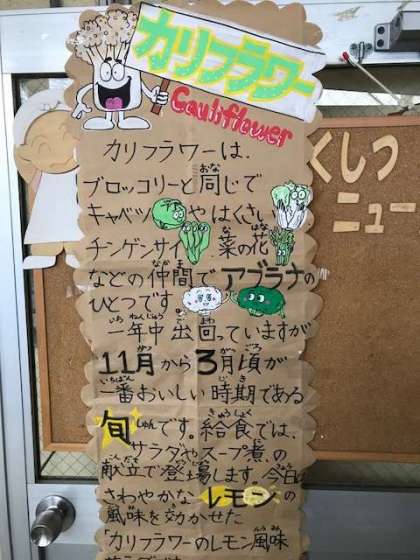 カリフラワー
Cauliflower
カリフラワーは、
ブロッコリーと同じで
キャベツやはくさい
チンゲンサイ、菜の花
などの仲間でアブラナの
ひとつです。
一年中出回っていますが
11月から3月頃が
一番おいしい時期である
旬です。給食では、
サラダやスープ煮の
献立で登場します。今日は
さわやかなレモンの
風味を効かせた
「カリフラワーのレモン風味
くしつ
ニュー